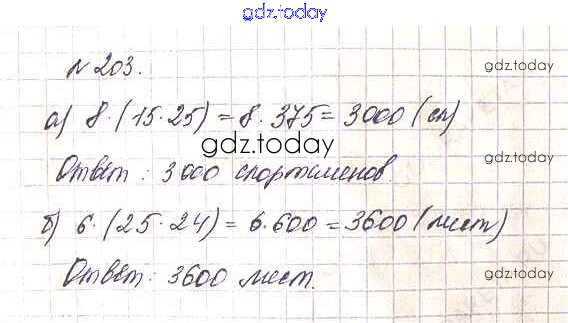 gdz.today
№ 203.
gdz.today
а) 8·(15·25) = 8·375 = 3000 (сп)
gdz.today
Ответ: 3000 спортсменов
gdz.today
б) 6·(25·24) = 6·600 = 3600 (лист)
gdz.today
Ответ: 3600 лист.
gdz.today